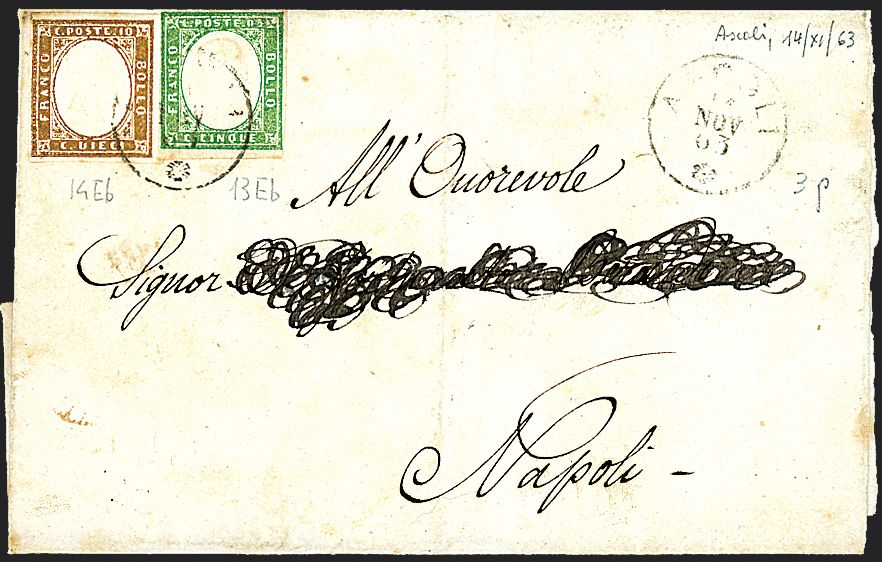 C. POSTE. 10
FRANCO
BOLLO
C. DIECI
C. POSTE. 05
FRANCO
BOLLO
C. CINQUE
Ascoli, 14/XI/63
ASCOLI
14
NOV
63
14Eb
13Eb
3 p
All' Onorevole
Signor
Napoli -